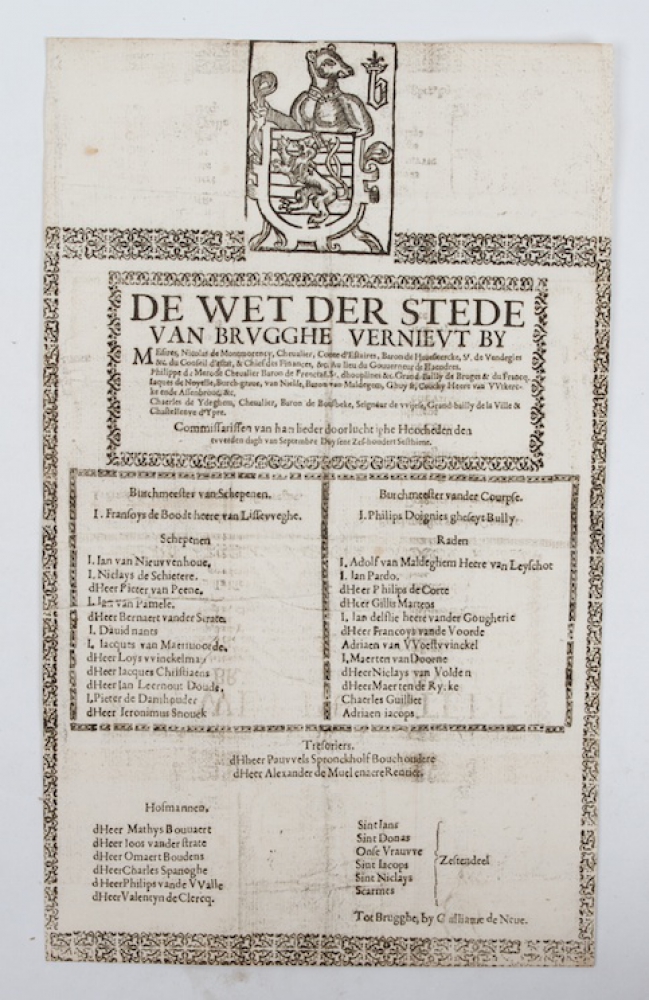 DE WET DER STEDE
VAN BRVGGHE VERNIEVT BY
Messires, Nicolas de Montmorency, Chevalier, Conte d'Estaires, Baron de Haveskercke, Sr. de Vendegies
&c. du Conseil d'estat, & Chief des Finances, &c. au lieu du Gouverneur de Flaendren.
Philippe de Merode Chevalier Baron de Frentzé, Sr. dhouplines &c. Grand Bailly de Bruges & du Francq.
Iaques de Noyelle, Borch-grave, van Nielle, Baron van Maldegem, Ghuy &
ke ende Assenbrouc, &c.
Chaerles de Ydeghem, Chevalier, Baron de Bousbeke, Seigneur de Grand-bailly de la Ville &
Chastelleeve d'Ypre.
Commissarissen van han lieder doorluchtighe Hoocheden den
dagh van Septembre Duysent Zes-hondert Sesthiene.
Burchmeester van Schepenen.
I. Fransoys de Boodt heere van Lisseuveghe.
Schepenen
I. Ian van Nieuvvenhove.
I. Niclays de Schietere.
dHeer Pieter van Peene.
I. Ian van Pamele.
dHeer Bernaert vander Strate.
I. Dauid nants
I. Iacques van Maernvoorde.
dHeer Loys vvinckelman
dHeer Iacques Christiaens
dHeer Ian Leernout Doude.
I. Pieter de Damhouder
dHeer Ieronimus Snouck
Burchmeester vander Courpse.
I. Philips Doignies gheseyt Bully.
Raden
I. Adolf van Maldeghem Heere van Leyschot
I. Ian Pardo.
dHeer Philips de Corte
dHeer Gillis Martens
I. Ian delflie heere vander Gougherie
dHeer Francoys vande Voorde
Adriaen van VVoestvvinckel
I. Maerten van Doorne
dHeer Niclays van Volden
dHeer Maerten de Rycke
Chaerles Guillier
Adriaen iacops
Tresoriers.
dHheer Pauvvels Spronckholf Bouchoudere
dHeer Alexander de Muelenacre Rentier.
Hofmannen.
dHeer Mathys Bouvaert
dHeer Ioos vander strate
dHeer Omaert Boudens
dHeer Charles Spanoghe
dHeer Philips vande VValle
dHeer Valentyn de Clercq.
Sint Ians
Sint Donas
Onse Vrauvve
Sint Iacops
Sint Niclays
Scarmes
Zestendeel
Tot Brugghe, by Guilliame de Neue.